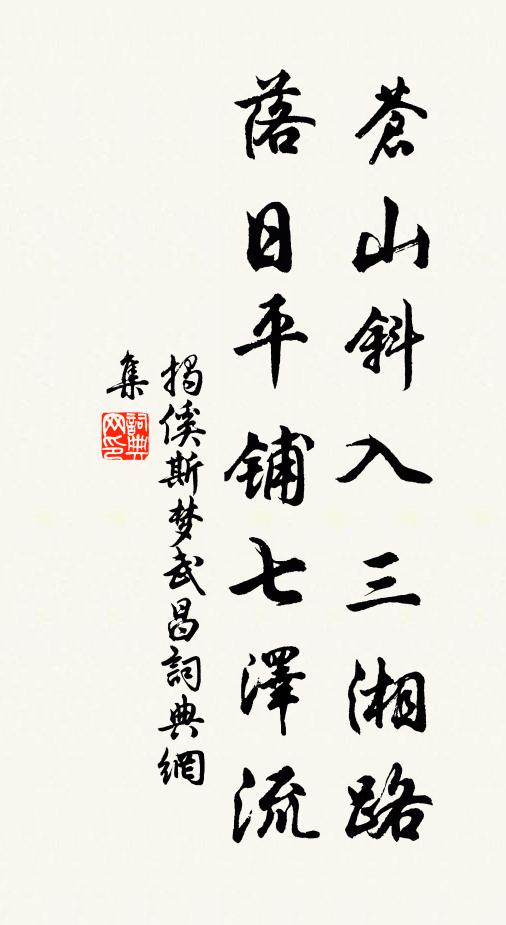 蒼山斜入三湘路
落日平鋪七澤流
揭傒斯梦武昌詞典網
集
詞典
网印